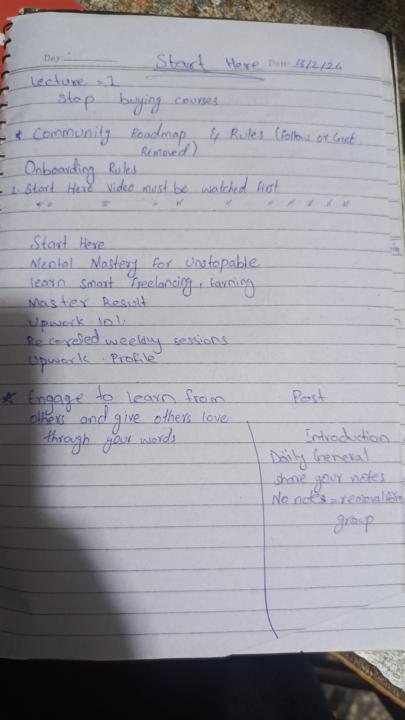 Day: Start Here Date: 13/2/26
Lecture = 1
Stop buying courses
* Community Roadmap & Rules (Follow or Get
Removed)
Onboarding Rules
1. Start Here Video must be watched first
" " " " " " " " " "
Start Here
Mental Mastery for Unstopable
learn smart freelancing, Earning
Master Result
Upwork 101:
Recoreded weekly sessions
Upwork Profile
* Engage to learn from
others and give others love
through your words
Post
Introduction
Daily General
share your notes
No notes = removal from
group